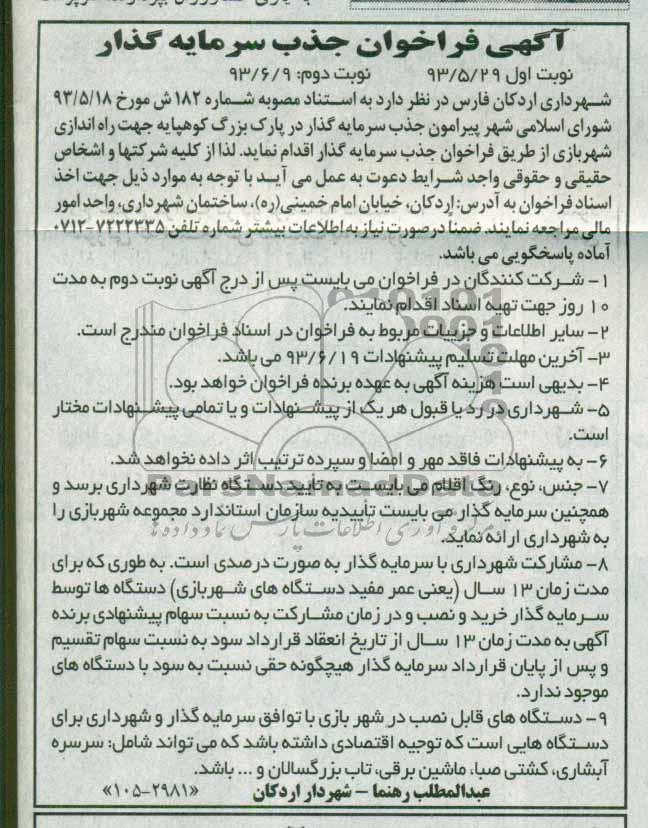 آگهی فراخوان جذب سرمایه گذار
نوبت اول ۹۳/۵/۲۹ نوبت دوم: ۹۳/۶/۹
شهرداری اردکان فارس در نظر دارد به استناد مصوبه شماره ۱۸۲ ش مورخ ۹۳/۵/۱۸
شورای اسلامی شهر پیرامون جذب سرمایه گذار در پارک بزرگ کوهپایه جهت راه اندازی
شهربازی از طریق فراخوان جذب سرمایه گذار اقدام نماید. لذا از کلیه شرکتها و اشخاص
حقیقی و حقوقی واجد شرایط دعوت به عمل می آید با توجه به موارد ذیل جهت اخذ
اسناد فراخوان به آدرس: اردکان، خیابان امام خمینی(ره)، ساختمان شهرداری، واحد امور
مالی مراجعه نمایند. ضمناً درصورت نیاز به اطلاعات بیشتر شماره تلفن ۷۲۲۲۳۳۵-۰۷۱۲
آماده پاسخگویی می باشد.
۱- شرکت کنندگان در فراخوان می بایست پس از درج آگهی نوبت دوم به مدت
۱۰ روز جهت تهیه اسناد اقدام نمایند.
۲- سایر اطلاعات و جزییات مربوط به فراخوان در اسناد فراخوان مندرج است.
۳- آخرین مهلت تسلیم پیشنهادات ۹۳/۶/۱۹ می باشد.
۴- بدیهی است هزینه آگهی به عهده برنده فراخوان خواهد بود.
۵- شهرداری در رد یا قبول هر یک از پیشنهادات و یا تمامی پیشنهادات مختار
است.
۶- به پیشنهادات فاقد مهر و امضا و سپرده ترتیب اثر داده نخواهد شد.
۷- جنس، نوع، رنگ اقلام می بایست به تأیید دستگاه نظارت شهرداری برسد و
همچنین سرمایه گذار می بایست تأییدیه سازمان استاندارد مجموعه شهربازی را
به شهرداری ارائه نماید.
۸- مشارکت شهرداری با سرمایه گذار به صورت درصدی است. به طوری که برای
مدت زمان ۱۳ سال (یعنی عمر مفید دستگاه های شهربازی) دستگاه ها توسط
سرمایه گذار خرید و نصب و در زمان مشارکت به نسبت سهام پیشنهادی برنده
آگهی به مدت زمان ۱۳ سال از تاریخ انعقاد قرارداد سود به نسبت سهام تقسیم
و پس از پایان قرارداد سرمایه گذار هیچگونه حقی نسبت به سود با دستگاه های
موجود ندارد.
۹- دستگاه های قابل نصب در شهر بازی با توافق سرمایه گذار و شهرداری برای
دستگاه هایی است که توجیه اقتصادی داشته باشد که می تواند شامل: سرسره
آبشاری، کشتی صبا، ماشین برقی، تاب بزرگسالان و ... باشد.
عبدالمطلب رهنما - شهردار اردکان «۱۰۵-۲۹۸۱»
ParsNamadData